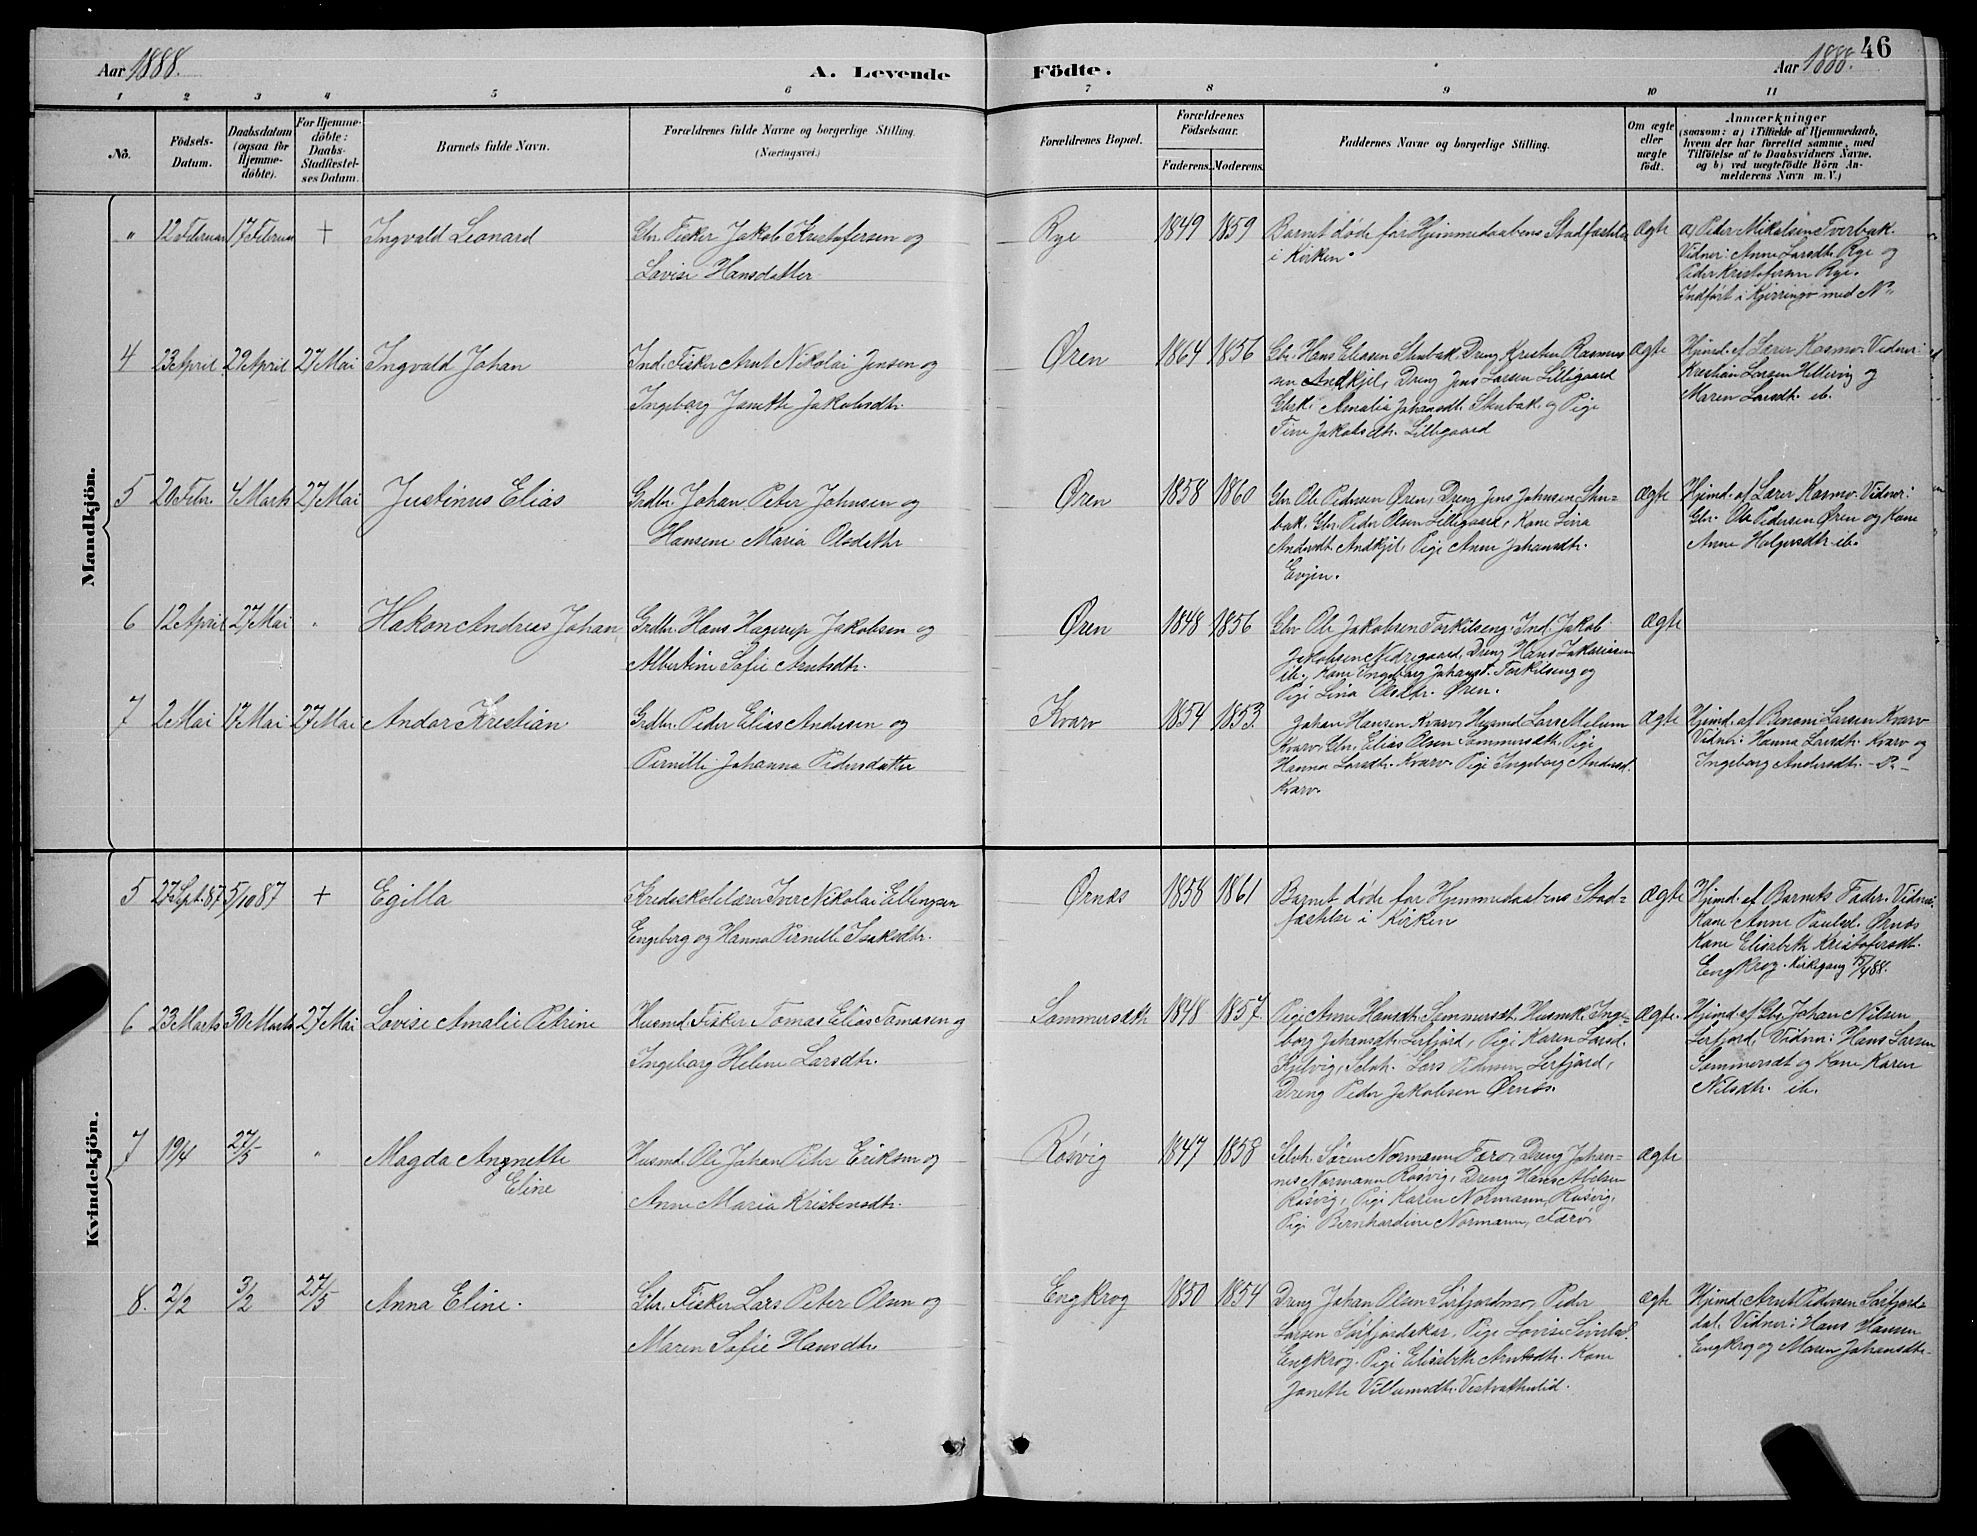 Aar 1888.
A. Levende
Födte.
Aar 1888.
46
1 2 3 4 5 6 7 8 9 10 11
No.
Födsels-Datum.
Daabsdatum (ogsaa for Hjemmedöbte).
For Hjemmedöbte: Daabs-Stadfæstelses Datum.
Barnets fulde Navn.
Forældrenes fulde Navne og borgerlige Stilling.
(Næringsvei.)
Forældrenes Bopæl.
Forældrenes Födselsaar.
Faderens. Moderens.
Faddernes Navne og borgerlige Stilling.
Om ægte eller uægte födt.
Anmærkninger
(saasom: a) i Tilfælde af Hjemmedaab,
hvem der har forrettet samme, med
Tilföielse af to Daabsvidners Navne.
og b) ved uægtefödte Börn An-
melderens Navn m. V.)
Mandkjön.
" 12 Februar 17 Februar + Ingvald Leonard
Gbr. Fisker Jakob Kristofersen og
Lovise Hansdatter
Rye 1849 1859
Barnet døde før Hjemmedaabens Stadfæstelse
i Kirken.
Ægte
a) Peder Mikalsen Tverbak.
Vidner: Anne Larsdtr. Rye og
Peder Kristofersen Rye.
Indført i Kjerringø med No "
4 23 April 29 April 27 Mai Ingvald Johan
Ind. Fisker Arnt Nikolai Jensen og
Ingeborg Janette Jakobsdtr.
Øren 1864 1856
Gbr. Hans Eliasen Stenbak, Dreng Kristen Rasmus
sen Andkjil, Dreng Jens Larsen Lillegaard
Gbrk. Amalia Johansdtr. Stenbak og Pige
Tine Jakobsdtr. Lillegaard
Ægte
Hjmd. af Lærer Kosmo. Vidner:
Kristian Larsen Hellevig og
Maren Larsdtr. ib.
5 20 Febr. 4 Marts 27 Mai Justinus Elias
Grdbr. Johan Peter Johnsen og
Hansine Maria Olsdattr
Øren 1858 1860
Gbr Ole Pedersen Øren, Dreng Jens Johnsen Sten=
bak, Gbr. Peder Olsen Lillegaard, Kone Lina
Andersdt. Andkjil, Pige Anne Johansdtr.
Evjen.
Ægte
Hjmd. af Lærer Kosmo. Vidner:
Gbr. Ole Pedersen Øren og Kone
Anne Holgersdtr. ib.
6 12 April 27 Mai " Hakon Andreas Johan
Grdbr. Hans Hagerup Jakobsen og
Albertine Sofie Arntsdtr.
Øren 1848 1856
Gbr Ole Jakobsen Torkilseng, Ind. Jakob
Jakobsen Nedregaard, Dreng Hans Zakariasen
ib., Kone Ingeborg Johansd. Torkilseng og
Pige Lina Olsdtr. Øren.
Ægte
7 2 Mai 17 Mai 27 Mai Andor Kristian
Grdbr. Peder Elias Andersen og
Pernille Johanna Pedersdatter
Kvarv 1854 1853.
Johan Hansen Kvarv, Husmd Lars Melum
Kvarv, Gbr. Elias Olsen Sommersæth, Pige
Hanna Larsdtr. Kvarv. Pige Ingeborg Andersd.
Kvarv.
Ægte
Hjmd. af Benoni Larsen Kvarv
Vidner: Hanna Larsdtr. Kvarv og
Ingeborg Andersdtr.
Kvindekjön.
5 27 Sept. 87 5/10 87 + Egilla
Kredsskolelærer Iver Nikolai Ellingsen
Engeberg og Hanna Pernille Isaksdtr.
Ørnæs 1858 1861
Barnet døde før Hjemmedaabens Stad=
fæstelse i Kirken
Ægte
Hjmd. af Barnets Fader. Vidner:
Kone Anne Paulsd. Ørnæs
Kone Elisabeth Kristofersdtr.
Engkrog. Kirkegang 15/4 88.
6 23 Marts 30 Marts 27 Mai Lovise Amalie Petrine
Husmd. Fisker Tomas Elias Tomasen og
Ingeborg Helene Larsdtr.
Sommersæth 1848 1857.
Pige Anne Hansdt. Sommersæt, Husmk. Inge=
borg Johansdtr. Leifjord, Pige Karen Larsd.
Kjelvig, Selvh. Lars Pedersen Leifjord,
Dreng Peder Jakobsen Ørnæs.
Ægte.
Hjmd. af Gbr. Johan Nilsen
Leifjord. Vidner: Hans Larsen
Sommersæt og Kone Karen
Nilsdtr. ib.
7 19/4 27/5 " Magda Angnette
Eline
Husmd. Ole Johan Peter Eriksen og
Anne Maria Kristensdtr.
Røsvig 1847 1858
Selvh. Søren Normann Færø, Dreng Johan=
nes Normann Røsvig, Dreng Hans Abelsen
Røsvig, Pige Karen Normann, Røsvig,
Pige Bernhardine Normann, Færø.
Ægte
8. 2/2 3/2 27/5 Anna Eline.
Gbr. Fisker Lars Peter Olsen og
Maren Sofie Hansdtr
Engkrog 1850 1854
Dreng Johan Olsen Sørfjordmo, Peder
Larsen Sørfjordakar, Pige Lovise Sivertsd.
Engkrog. Pige Elisabeth Arntsdtr. Kone
Janette Villumsdtr.
Ægte
Hjmd. Arnt Pedersen Sørfjord=
dal. Vidner: Hans Hansen
Engkrog og Maren Johansdtr.